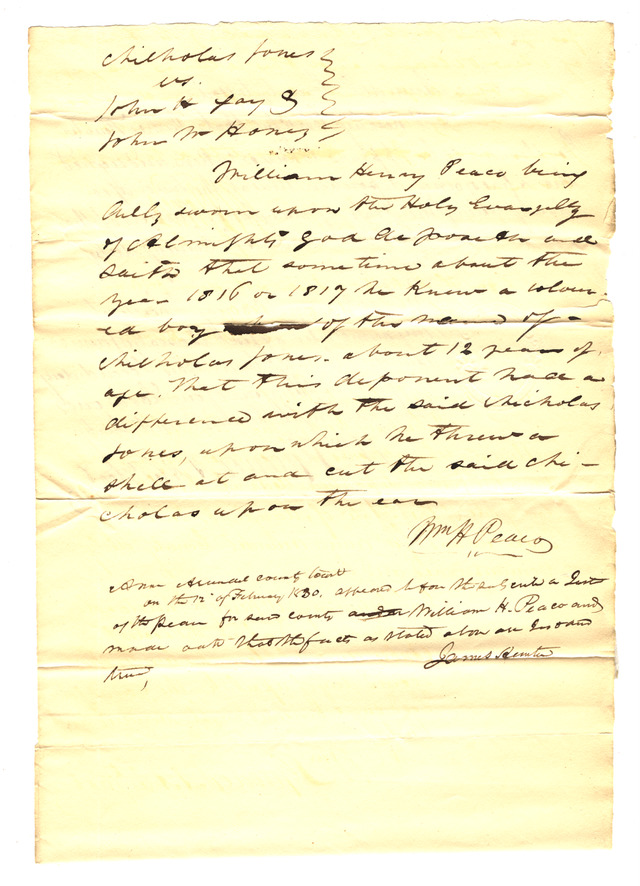 Nicholas Jones
vs.
John H Fay &
John W Honey
William Henry Peaco being
dully sworn upon the Holy Evangelly
of Almighti God deposeth and
saith that sometime about the
year 1816 or 1817 he knew a colour-
ed boy of the name of
Nicholas Jones about 12 years of
age. That this deponent had a
difference with the said Nicholas
Jones, upon which he threw a
shell at and cut the said Ni-
cholas upon the ear
Wm H Peaco
Ann Arundel county to wit
on the 12th of February 1830. appeared before the a Just
of the peace for said county William H. Peaco and
made oath that the facts as stated above are
true,
James Hunter